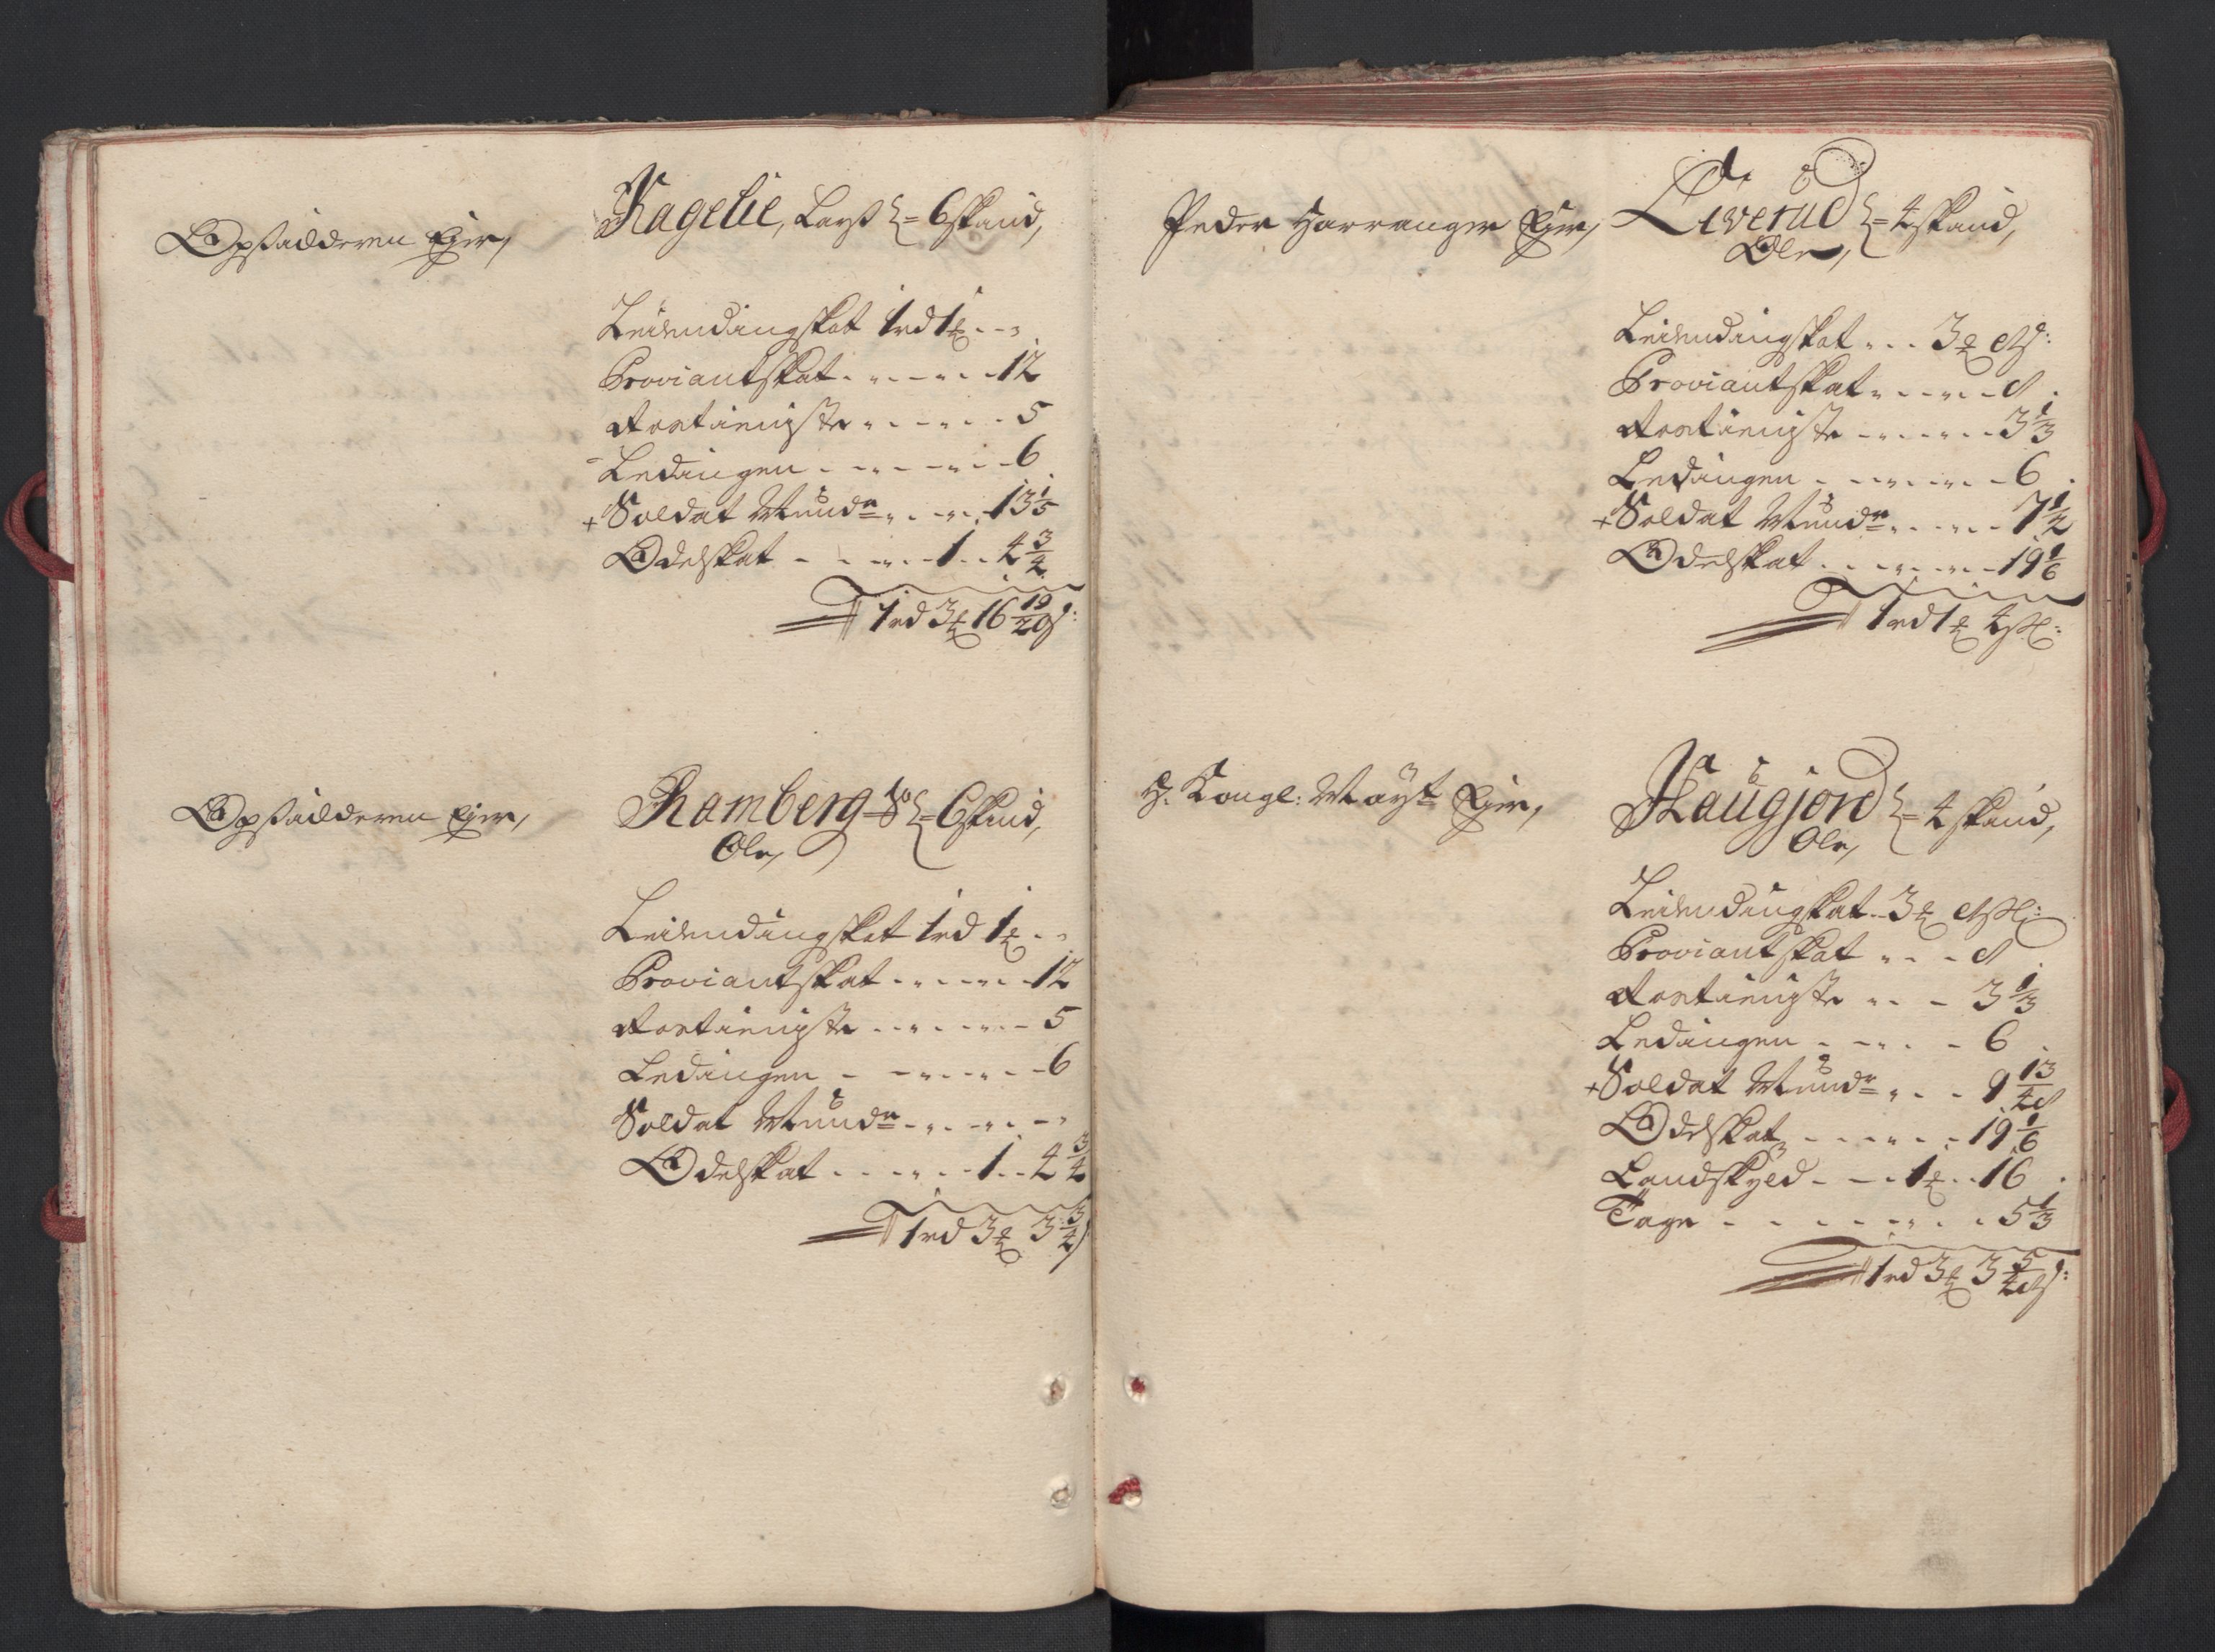 Opsidderen Ejer,
Kagelie, Larß 6 skind,
Leilendingskat 1 rd 1 ort
Proviantskat 12
Rostieniste 5
Ledingen 6
+ Soldat Mundr 13 1/5
Odelskat 1 . 4 3/4
1 rd 3 ort 16 19/20 s:
Opsidderen Ejer,
Ramberg 6 skind,
Ole,
Leilendingskat 1 rd 1 ort
Proviantskat 12
Rostieniste 5
Ledingen 6
Soldat Mundr
Odelskat 1 . 4 3/4
1 rd 3 ort 3 3/4 s
Peder Harranger Ejer,
Liverud 4 skind,
Ole,
Leilendingskat 3 ort 8 s:
Proviantskat 8
Rostieniste 3 1/3
Ledingen 6
+ Soldat Mundr 7 1/2
Odelskat 19 1/6
1 rd 1 ort 4 sk:
H. Kongl: Mayt Ejer,
Haugjord 4 skind,
Ole,
Leilendingskat 3 ort 8 sk:
Proviantskat 8
Rostieniste 3 1/3
Ledingen 6
+ Soldat Mundr 9 13/48
Odelskat 19 1/6
Landskyld 1 ort 16
Tage 5 1/3
1 rd 3 ort 3 5/48 s: